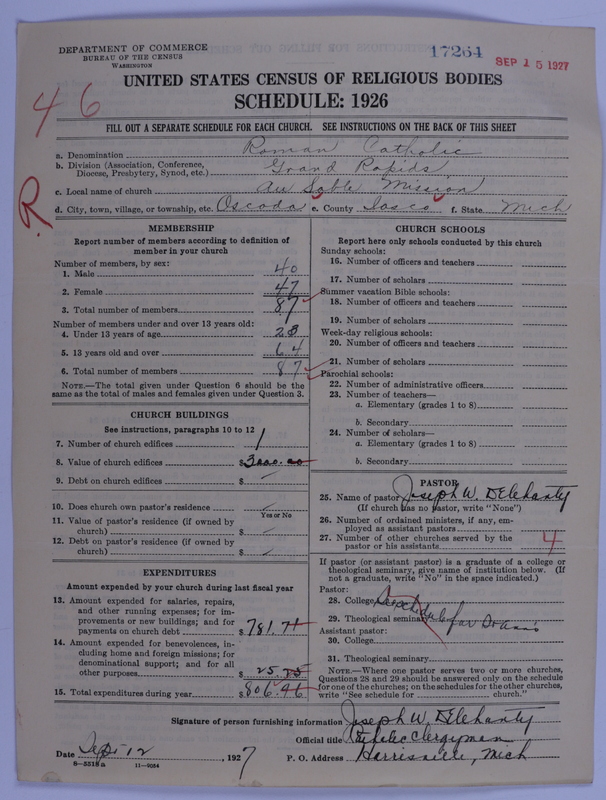 DEPARTMENT OF COMMERCE
BUREAU OF THE CENSUS
WASHINGTON
17264
SEP 15 1927
UNITED STATES CENSUS OF RELIGIOUS BODIES
SCHEDULE: 1926
46
FILL OUT A SEPARATE SCHEDULE FOR EACH CHURCH. SEE INSTRUCTIONS ON THE BACK OF THIS SHEET
a. Denomination Roman Catholic
b. Division (Association, Conference, Diocese, Presbytery, Synod, etc.) Grand Rapids
c. Local name of church Au Sable Mission
R
d. City, town, village, or township, etc. Oscoda e. County Iosco f. State Mich
MEMBERSHIP
Report number of members according to definition of
member in your church
Number of members, by sex:
1. Male 40
2. Female 47
3. Total number of members 87
Number of members under and over 13 years old:
4. Under 13 years of age 23
5. 13 years old and over 64
6. Total number of members 87
NOTE.—The total given under Question 6 should be the
same as the total of males and females given under Question 3.
CHURCH BUILDINGS
See instructions, paragraphs 10 to 12
7. Number of church edifices 1
8. Value of church edifices $3000.00
9. Debt on church edifices $
10. Does church own pastor's residence
Yes or No
11. Value of pastor's residence (if owned by
church) $
12. Debt on pastor's residence (if owned by
church) $
EXPENDITURES
Amount expended by your church during last fiscal year
13. Amount expended for salaries, repairs,
and other running expenses; for im-
provements or new buildings; and for
payments on church debt $781.71
14. Amount expended for benevolences, in-
cluding home and foreign missions; for
denominational support; and for all
other purposes $25.
15. Total expenditures during year $806.46
CHURCH SCHOOLS
Report here only schools conducted by this church
Sunday schools:
16. Number of officers and teachers
17. Number of scholars
Summer vacation Bible schools:
18. Number of officers and teachers
19. Number of scholars
Week-day religious schools:
20. Number of officers and teachers
21. Number of scholars
Parochial schools:
22. Number of administrative officers
23. Number of teachers—
a. Elementary (grades 1 to 8)
b. Secondary
24. Number of scholars—
a. Elementary (grades 1 to 8)
b. Secondary
PASTOR
25. Name of pastor Joseph W. Delehanty
(If church has no pastor, write "None")
26. Number of ordained ministers, if any, em-
ployed as assistant pastors
27. Number of other churches served by the
pastor or his assistants 4
If pastor (or assistant pastor) is a graduate of a college or
theological seminary, give name of institution below. (If
not a graduate, write "No" in the space indicated.)
Pastor:
28. College See schedule for
29. Theological seminary
Assistant pastor:
30. College
31. Theological seminary
NOTE.—Where one pastor serves two or more churches,
Questions 28 and 29 should be answered only on the schedule
for one of the churches; on the schedules for the other churches,
write "See schedule for church."
Signature of person furnishing information Joseph W. Delehanty
Official title Catholic Clergyman
Date Sept 12, 1927 P. O. Address Harrisville, Mich
8—5518a 11—9034